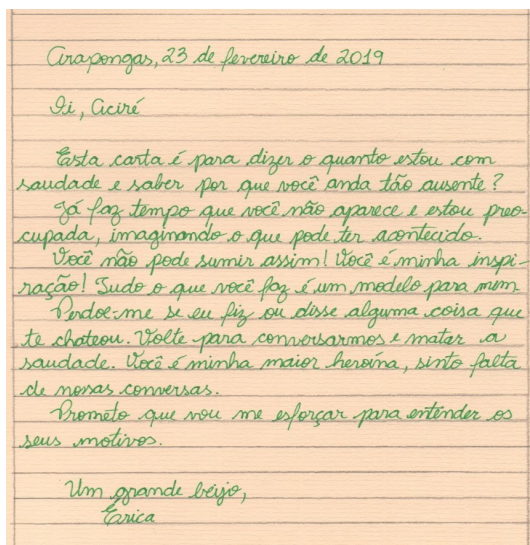 Arapongas, 23 de fevereiro de 2019
Oi, Aciré
Esta carta é para dizer o quanto estou com
saudade e saber por que você anda tão ausente?
Já faz tempo que você não aparece e estou preo-
cupada, imaginando o que pode ter acontecido.
Você não pode sumir assim! Você é minha inspi-
ração! Tudo o que você faz é um modelo para mim.
Perdoe-me se eu fiz ou disse alguma coisa que
te chateou. Volte para conversarmos e matar a
saudade. Você é minha maior heroína, sinto falta
de nossas conversas.
Prometo que vou me esforçar para entender os
seus motivos.
Um grande beijo,
Érica